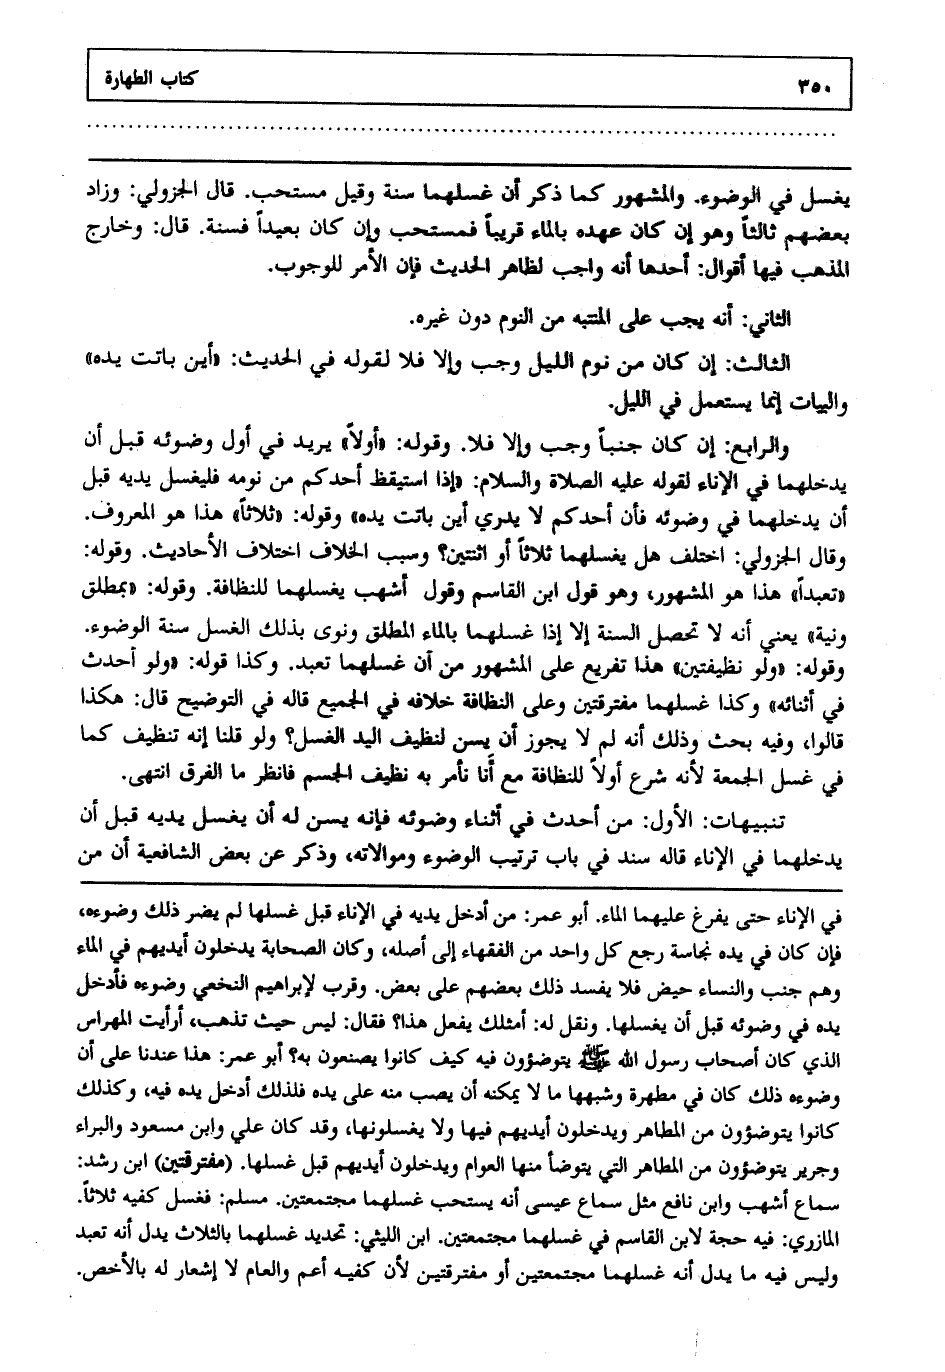 ٣٥٠
كتاب الطهارة
يغسل في الوضوء. والمشهور كما ذكر أن غسلهما سنة وقيل مستحب. قال الجزولي: وزاد
بعضهم ثالثاً وهو إن كان عهده بالماء قريباً فمستحب وإن كان بعيداً فسنة. قال: وخارج
المذهب فيها أقوال: أحدها أنه واجب لظاهر الحديث فإن الأمر للوجوب.
الثاني: أنه يجب على المنتبه من النوم دون غيره.
الثالث: إن كان من نوم الليل وجب وإلا فلا لقوله في الحديث: «أين باتت يده»
والبيات إنما يستعمل في الليل.
والرابع: إن كان جنباً وجب وإلا فلا. وقوله: «أولاً» يريد في أول وضوئه قبل أن
يدخلهما في الإناء لقوله عليه الصلاة والسلام: «إذا استيقظ أحدكم من نومه فليغسل يديه قبل
أن يدخلهما في وضوئه فأن أحدكم لا يدري أين باتت يده» وقوله: «ثلاثاً» هذا هو المعروف.
وقال الجزولي: اختلف هل يغسلهما ثلاثاً أو اثنتين؟ وسبب الخلاف اختلاف الأحاديث. وقوله:
«تعبداً» هذا هو المشهور، وهو قول ابن القاسم وقول أشهب يغسلهما للنظافة. وقوله: «بمطلق
ونية» يعني أنه لا تحصل السنة إلا إذا غسلهما بالماء المطلق ونوى بذلك الغسل سنة الوضوء.
وقوله: «ولو نظيفتين» هذا تفريع على المشهور من أن غسلهما تعبد. وكذا قوله: «ولو أحدث
في أثنائه» وكذا غسلهما مفترقتين وعلى النظافة خلافه في الجميع قاله في التوضيح قال: هكذا
قالوا، وفيه بحث وذلك أنه لم لا يجوز أن يسن لنظيف اليد الغسل؟ ولو قلنا إنه تنظيف كما
في غسل الجمعة لأنه شرع أولاً للنظافة مع أنا نأمر به نظيف الجسم فانظر ما الفرق انتهى.
تنبيهات: الأول: من أحدث في أثناء وضوئه فإنه يسن له أن يغسل يديه قبل أن
يدخلهما في الإناء قاله سند في باب ترتيب الوضوء وموالاته، وذكر عن بعض الشافعية أن من
في الإناء حتى يفرغ عليهما الماء. أبو عمر: من أدخل يديه في الإناء قبل غسلها لم يضر ذلك وضوءه،
فإن كان في يده نجاسة رجع كل واحد من الفقهاء إلى أصله، وكان الصحابة يدخلون أيديهم في الماء
وهم جنب والنساء حيض فلا يفسد ذلك بعضهم على بعض. وقرب لإبراهيم النخعي وضوءه فأدخل
يده في وضوئه قبل أن يغسلها. ونقل له: أمثلك يفعل هذا؟ فقال: ليس حيث تذهب، أرأيت المهراس
الذي كان أصحاب رسول الله ﷺ يتوضؤون فيه كيف كانوا يصنعون به؟ أبو عمر: هذا عندنا على أن
وضوءه ذلك كان في مطهرة وشبهها ما لا يمكنه أن يصب منه على يده فلذلك أدخل يده فيه، وكذلك
كانوا يتوضؤون من المطاهر ويدخلون أيديهم فيها ولا يغسلونها، وقد كان علي وابن مسعود والبراء
وجرير يتوضؤون من المطاهر التي يتوضأ منها العوام ويدخلون أيديهم قبل غسلها. (مفترقتين) ابن رشد:
سماع أشهب وابن نافع مثل سماع عيسى أنه يستحب غسلهما مجتمعتين. مسلم: فغسل كفيه ثلاثاً.
المازري: فيه حجة لابن القاسم في غسلهما مجتمعتين. ابن الليثي: تحديد غسلهما بالثلاث يدل أنه تعبد
وليس فيه ما يدل أنه غسلهما مجتمعتين أو مفترقتين لأن كفيه أعم والعام لا إشعار له بالأخص.